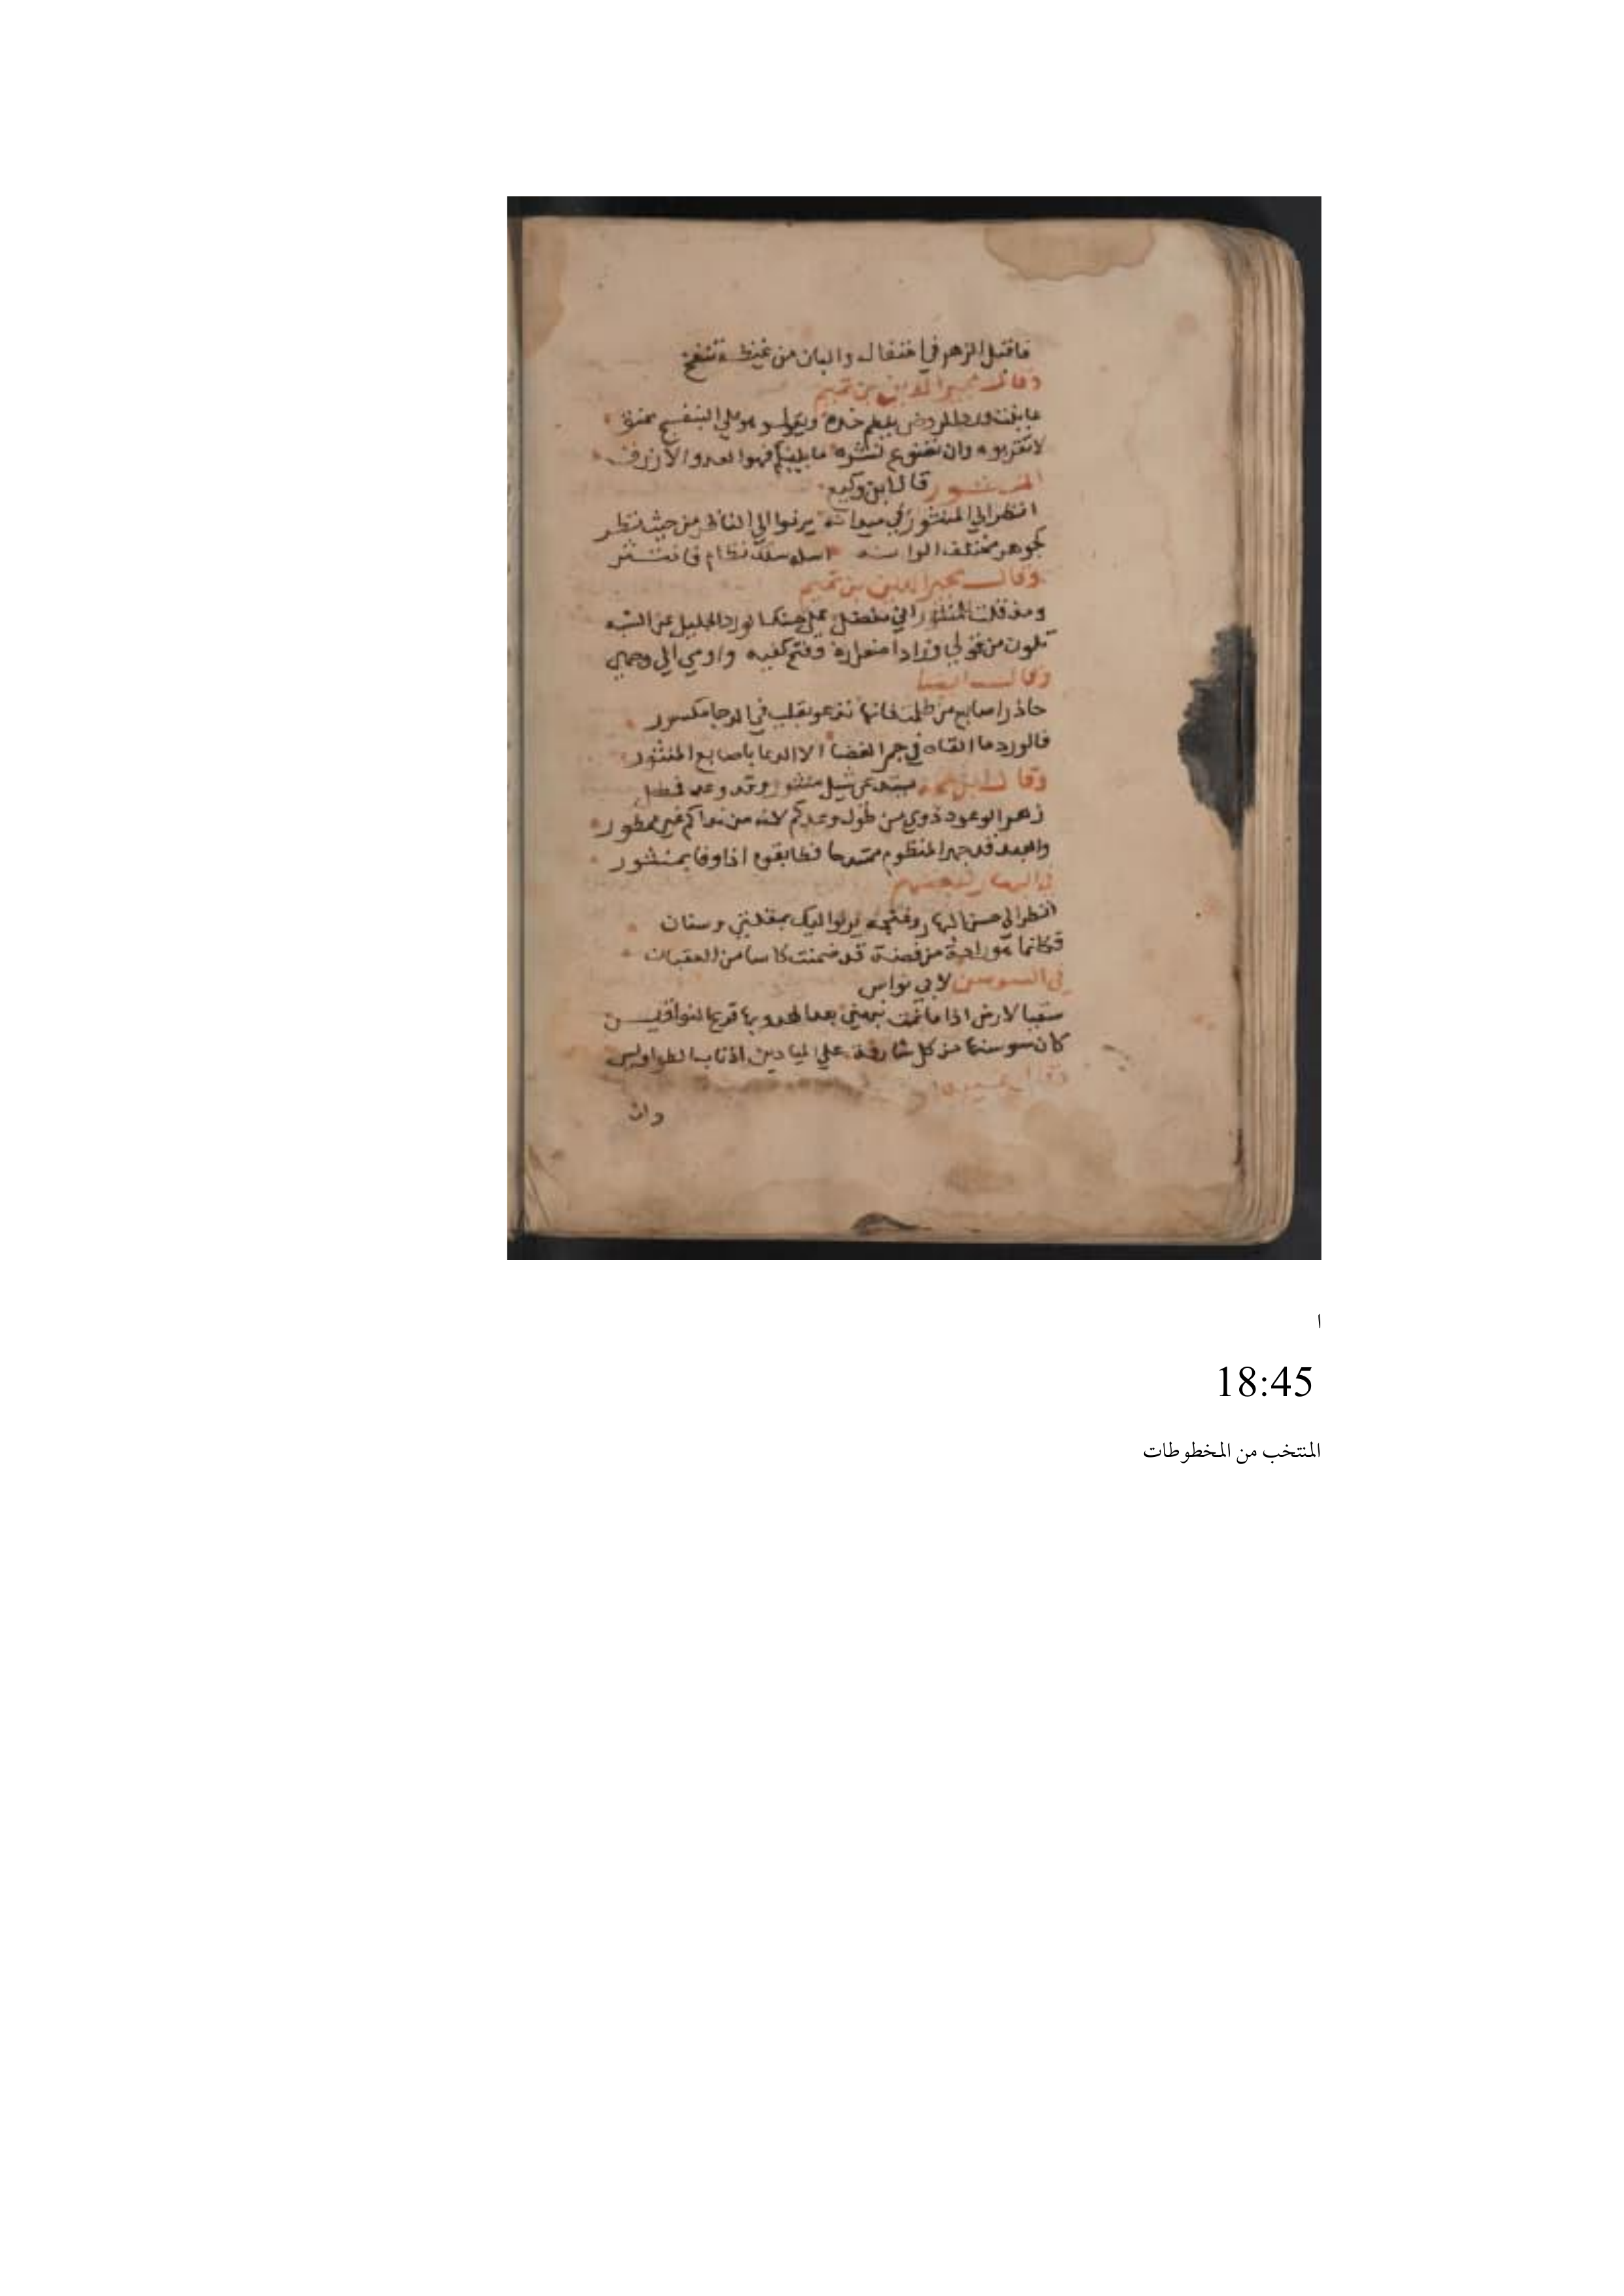 فاقبل الزهر في احتفال والبان من غيظه تنفخ
وقال مجير الدين بن تميم
عاينت ورد الروض يلطم خده ويقول وهو علي البنفسج محنق
لا تقربوه وان تضوع نشره ما بينكم فهو العدو الازرق
المنشور قال ابن وكيع
انظر الي المنثور في ميدانه يرنوا الي الناظر من حيث نظر
كجوهر مختلف الوانه اسلمه سلك نظام فانتثر
وقال مجير الدين بن تميم
ومذ قلت للمنثور اني مفضل علي حسنك الورد الجليل عن الشبه
تلون من قولي وزاد اصفراره وفتح كفيه واومي الي وجهي
وقال ايضا
حاذر اصابع من ظلمت فانها تدعو بقلب في الدجا مكسور
فالورد ما القاه في جمر الغضا الا الدعا باصابع المنثور
وقال منثور وقد وعد
زهر الوعود ذوي من طول وعدكم لانه من نداكم غير ممطور
والعبد قد جهز المنظوم ممتدحا فطابقوه اذا وفا بمنثور
في البهار لبعضهم
انظر الي حسن البهار يرنوا اليك بمقلتي وسنان
فكانما من فضة قد ضمنت كاسا من العقيان
في السوسن لابي نواس
سقيا لارض اذا ما نمت نبهني بعد الهدو بها قرع النواقيس
كان سوسنها من كل شارفة علي الميادين اذناب الطواويس
وقال
وان
ا
18:45
المنتخب من المخطوطات